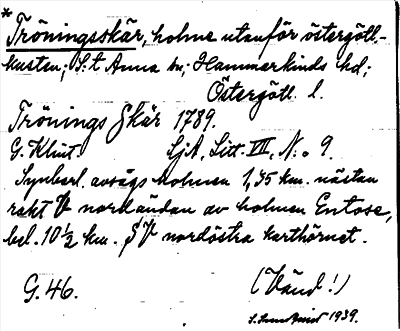 * Tröningsskär, holme utanför östergötl.-
kusten; S:t Anna sn; Hammarkinds hd;
Östergötl. l.
Trönings Skär 1789.
G. Klint. SjA, Litt. VII, N:o 9.
Synbarl. avságs holmen 1,35 km. nästan
rakt V nordändan av holmen Entose,
bel. 10 1/2 km. SV nordöstra karthörnet.
G. 46. (Vänd!)
1939.